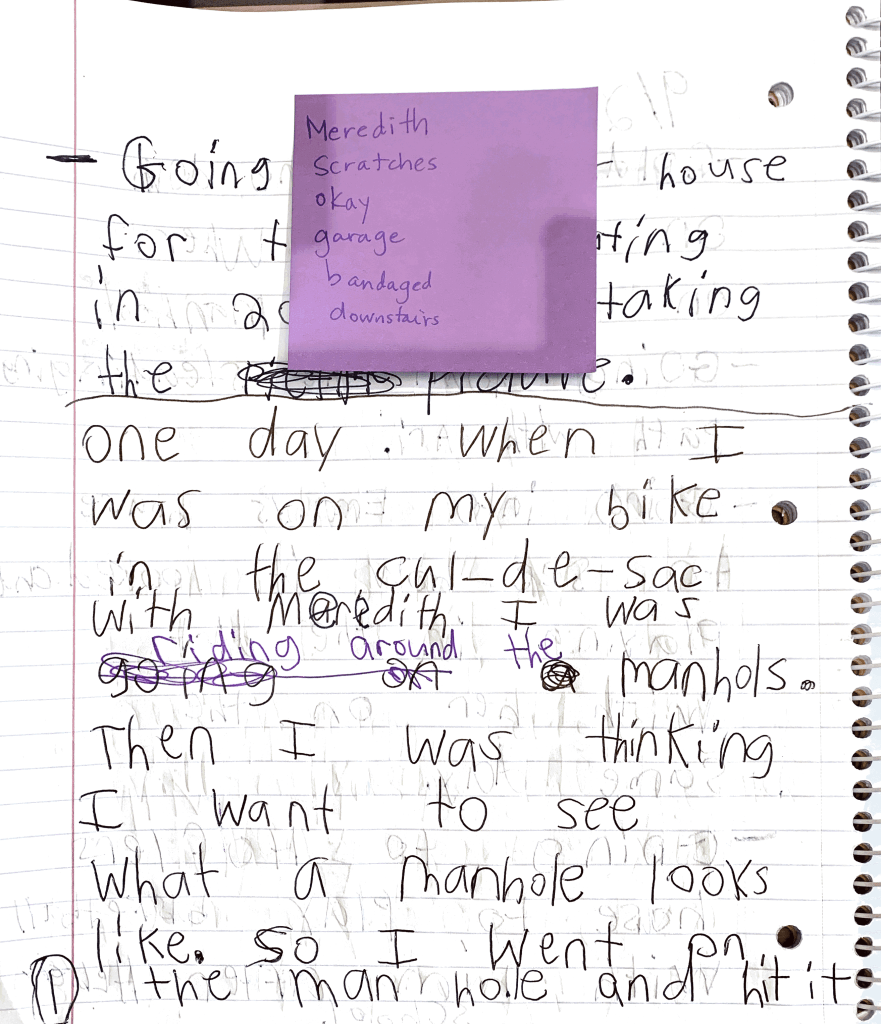 Meredith
Scratches
okay
garage
bandaged
downstairs
- Going house
for t ting
in 20 taking
the picture.
one day. When I
was on my bike
in the cul-de-sac
with Meredith. I was
riding around the
going on a manhols.
Then I was thinking
I want to see
What a manhole looks
like. so I went on
① the man hole and hit it